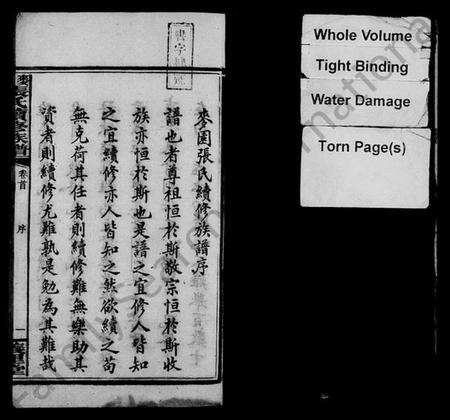 麥園張氏續修族譜序
譜也者尊祖恒於斯敬宗恒於斯收
族亦恒於斯也是譜之宜修人皆知
之宜續修亦人皆知之然欲續之苟
無克荷其任者則續修難無樂助其
資者則續修尤難孰是勉為其難哉
張氏續修族譜
卷首
序
一
Whole Volume
Tight Binding
Water Damage
Torn Page(s)
FamilySearch International